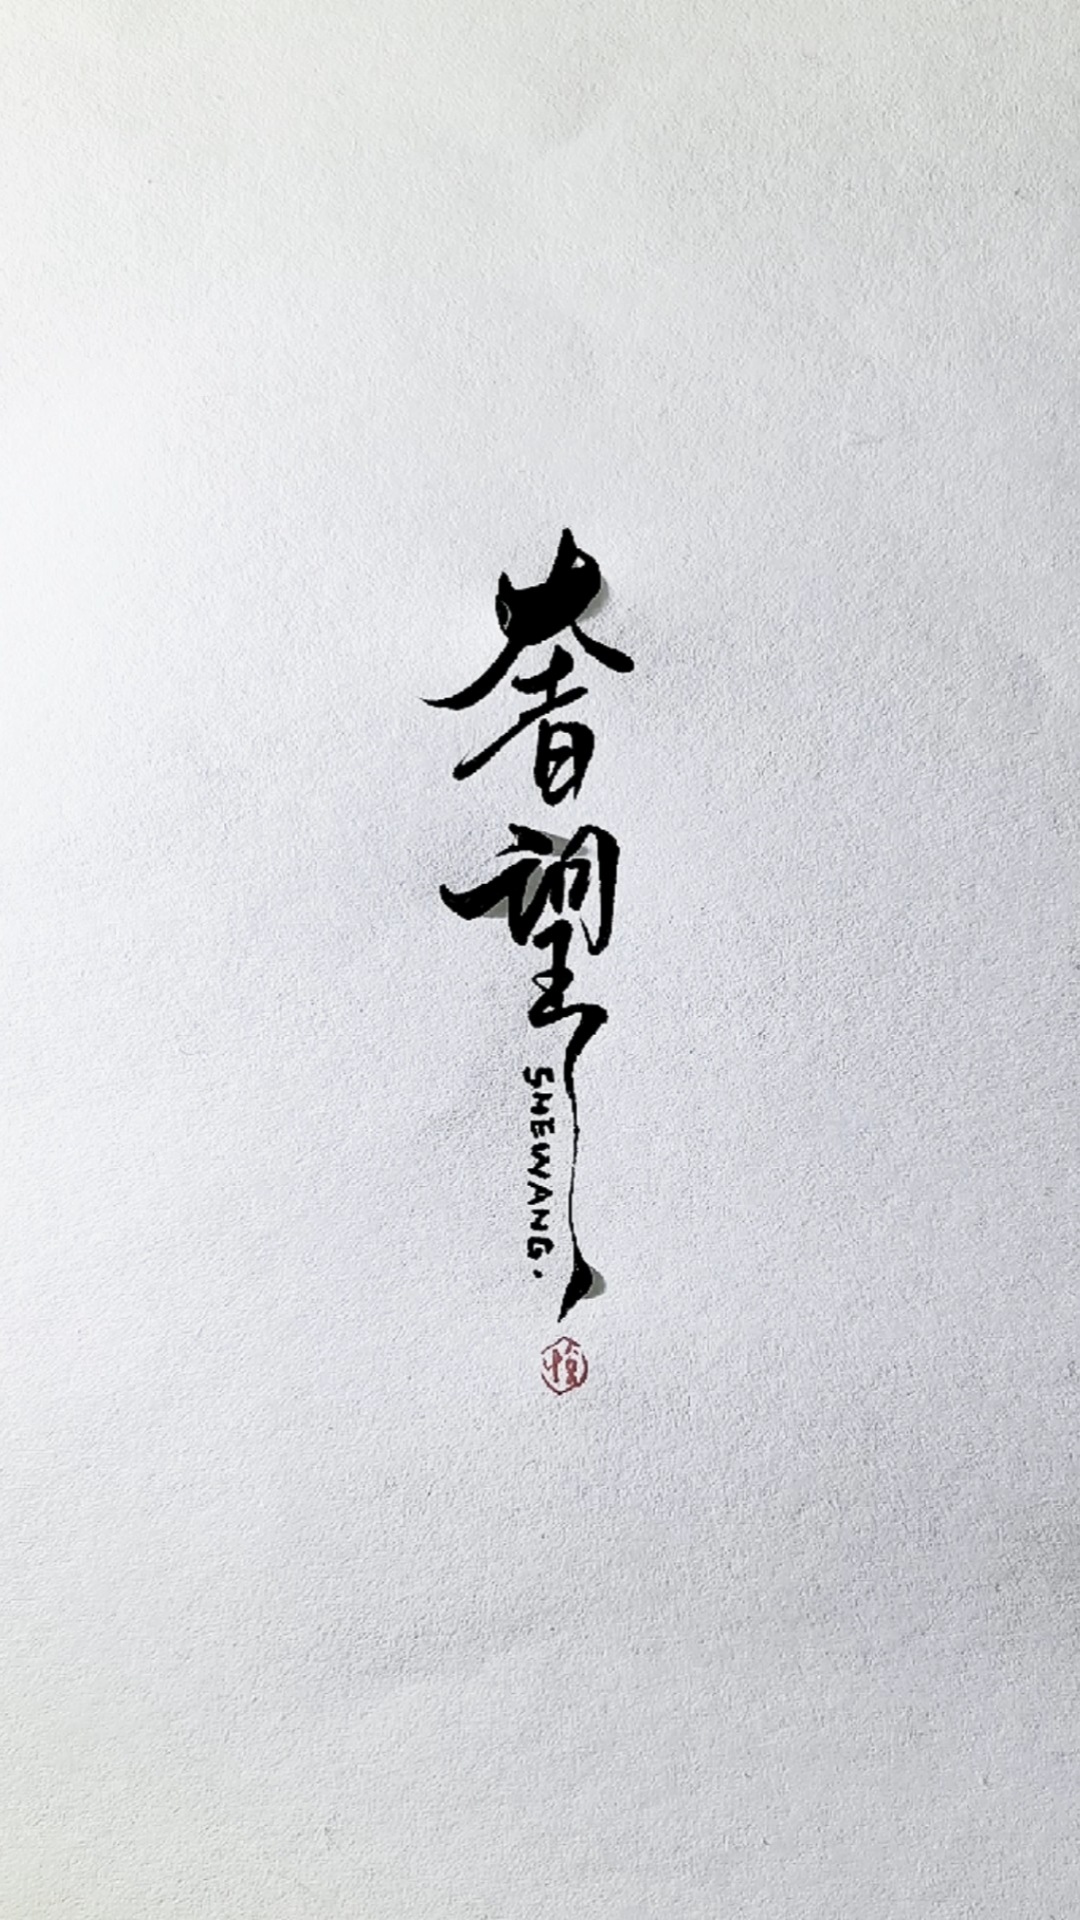 奢望
SHEWANG.